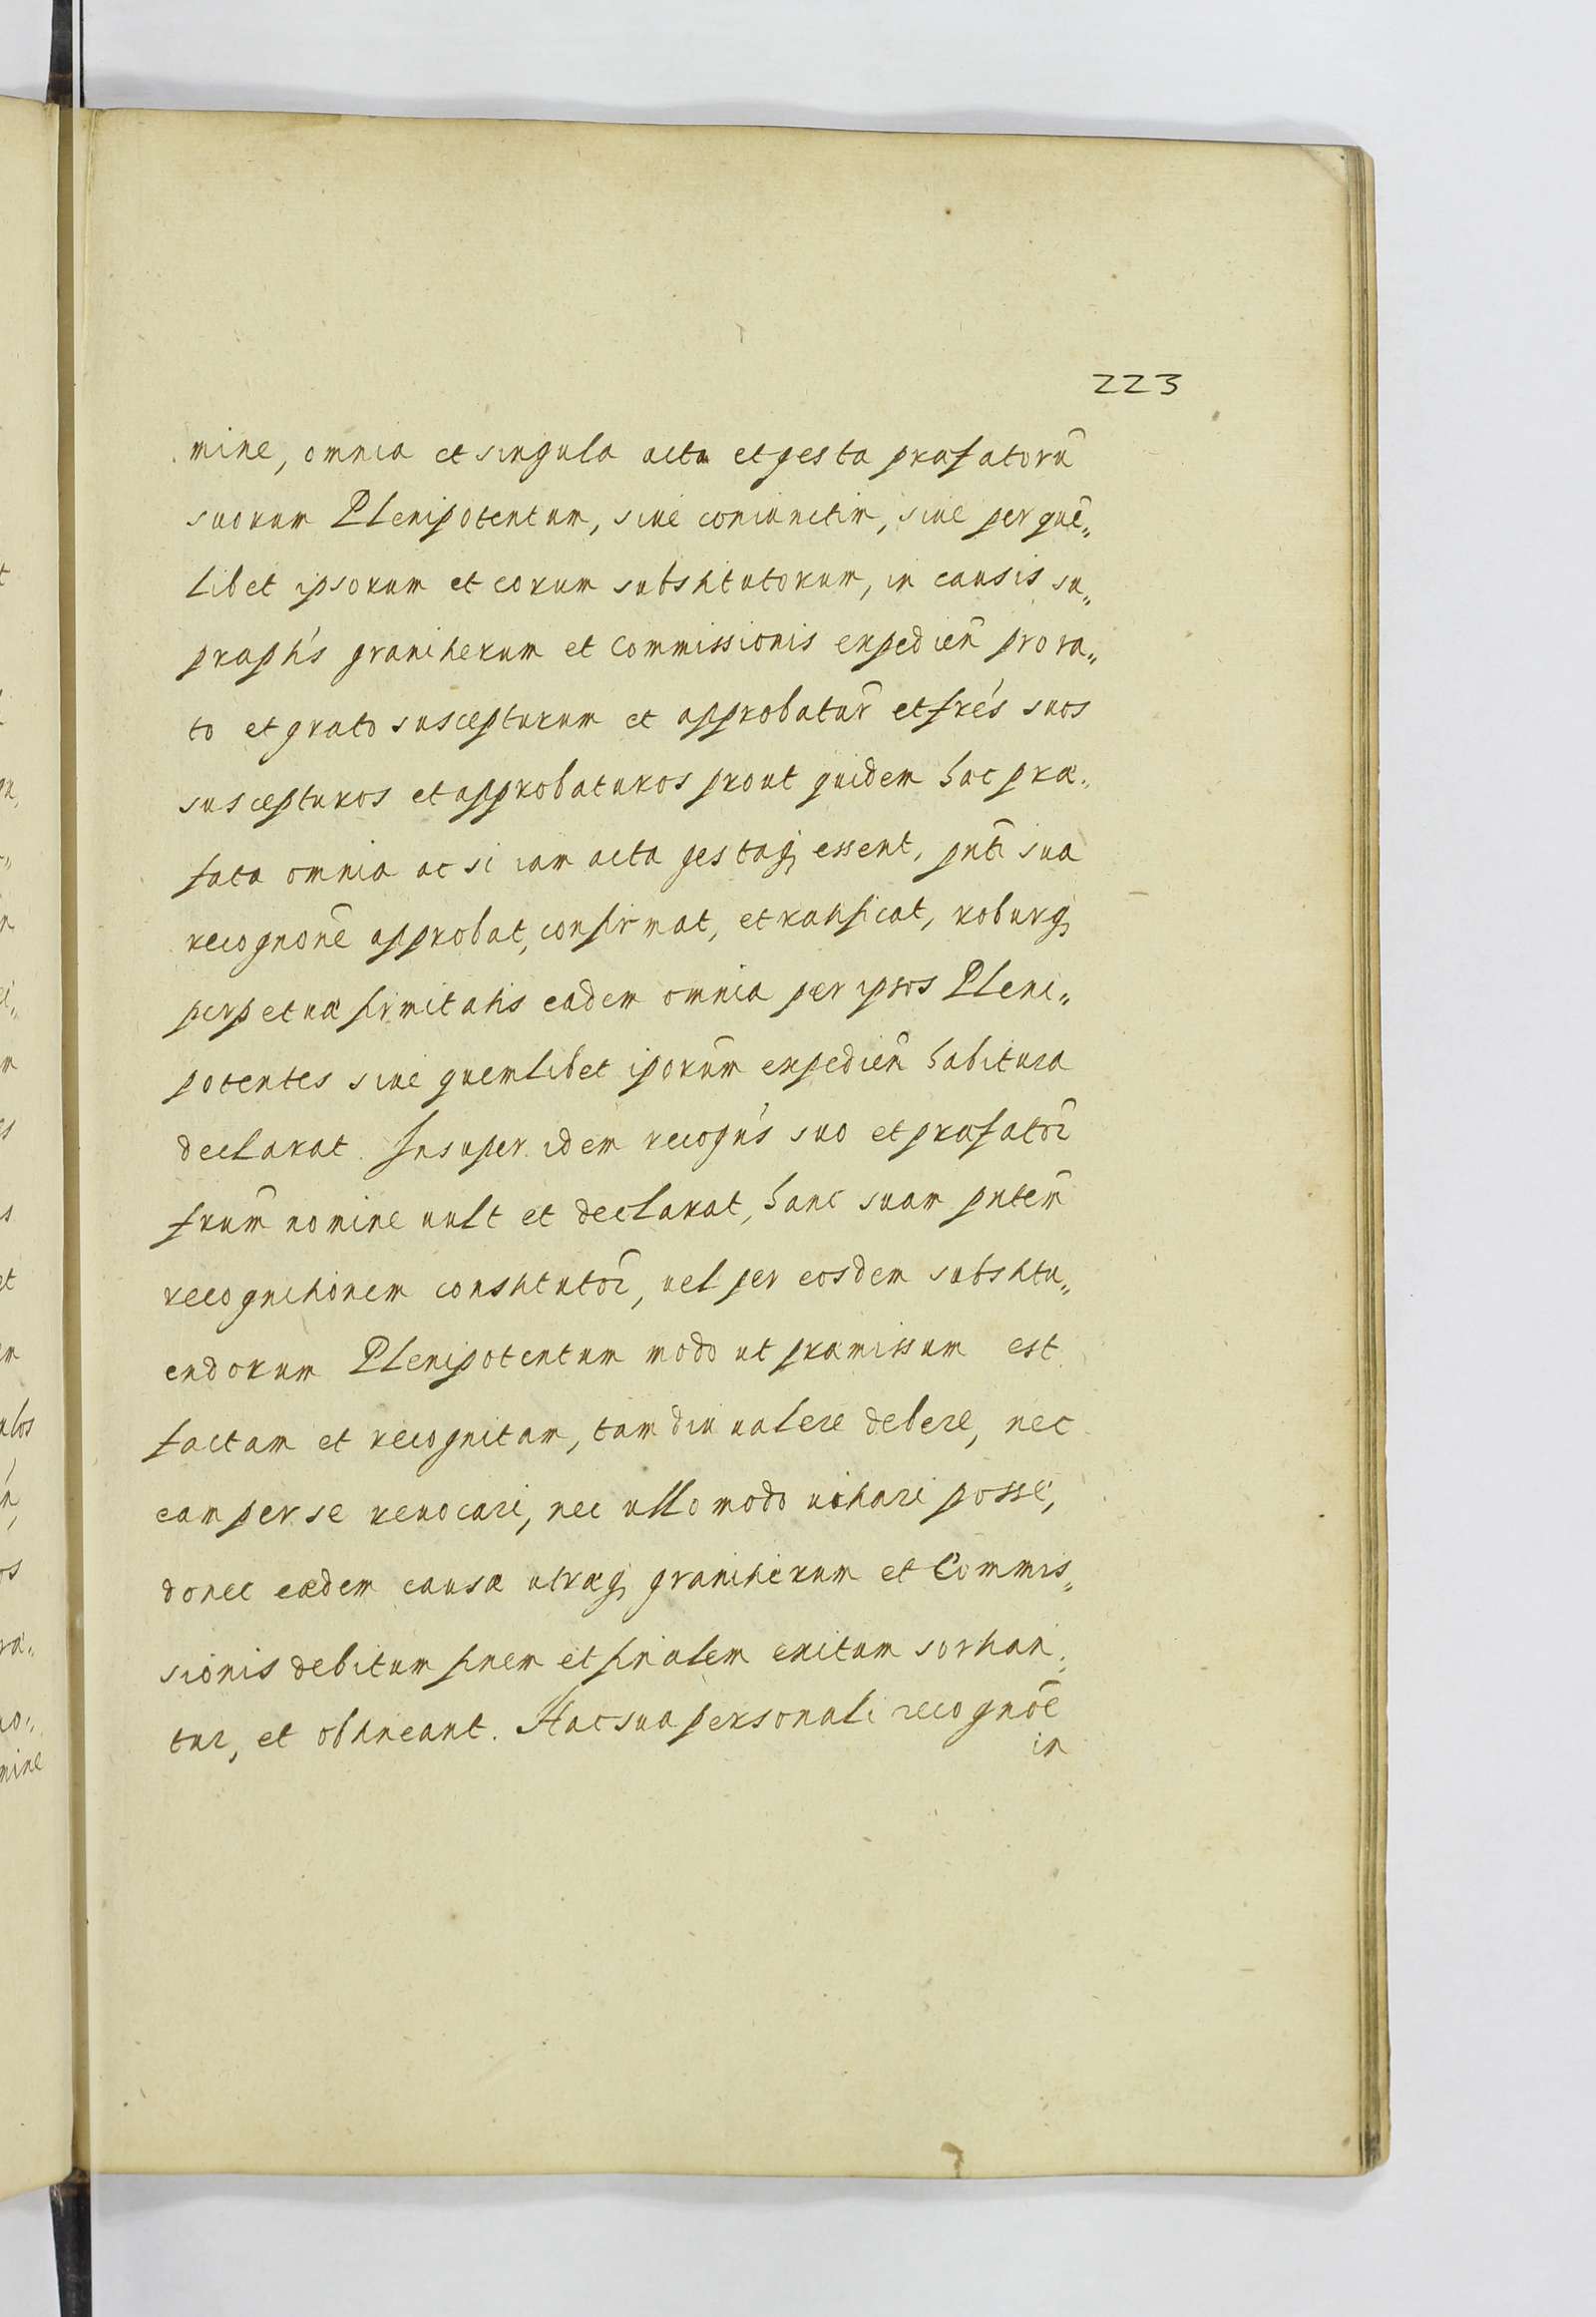 223
mine, omnia et singula acta et gesta præfatorū
suorum Plenipotentum, siue coniunctim, siue per quē„
libet ipsorum et eorum substitutorum, in causis su„
praptis granitierum et commissionis expedień pro ra„
to et grato suscepturum et approbatur̃ et frés suos
suscepturos et approbaturos prout quidem hæc præ„
fata omnia ac si iam acta gestaq́ essent, pnti sua
recognonē approbat, confirmat, et ratificat, roburq́
perpetuæ firmitatis eadem omnia per ipsos Pleni„
potentes siue quemlibet iporum̃ expedień habitura
declarat. Insuper idem recogńs suo et præfator̃
frum̃ nomine uult et declarat, hanc suam pntem̃
recognitionem constitutor̃, uel per eosdem substitu„
endorum Plenipotentum modo ut præmissum est
factam et recognitam, tam diu ualere debere, nec
eam per se reuocari, nec ullo modo uitiari posse,
donec eædem causæ utræq́ granitierum et Commis„
sionis debitum finem et finalem exitum sortian„
tur, et obtineant. Hac sua personali recognoē
in